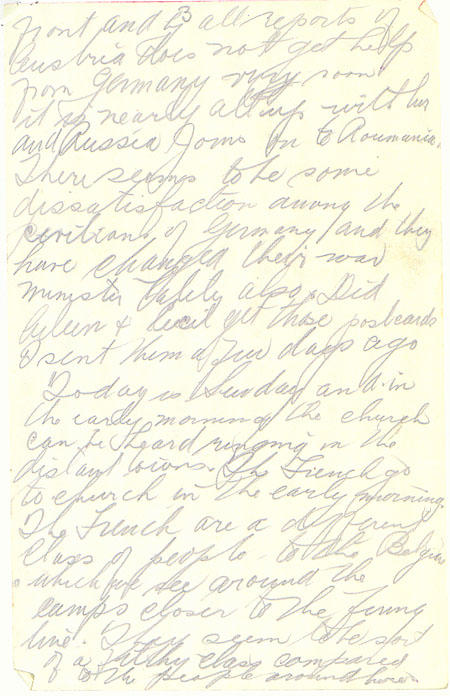 front and by all reports if
Austria does not get help
from Germany very soon
it is nearly all up with her
and Russia Joins on to Roumania.
There seems to be some
dissatisfaction among the
civilians of Germany and they
have changed their war
minister lately also. Did
Aileen & Cecil get those postcards
I sent them a few days ago
Today is Sunday and in
the early morning the church
can be heard ringing in the
distant towns. The French go
to church in the early morning.
The French are a different
class of people to the Belgian
which we see around the
camps closer to the firing
line. They seem to be sort
of a filthy class compared
to the people around here